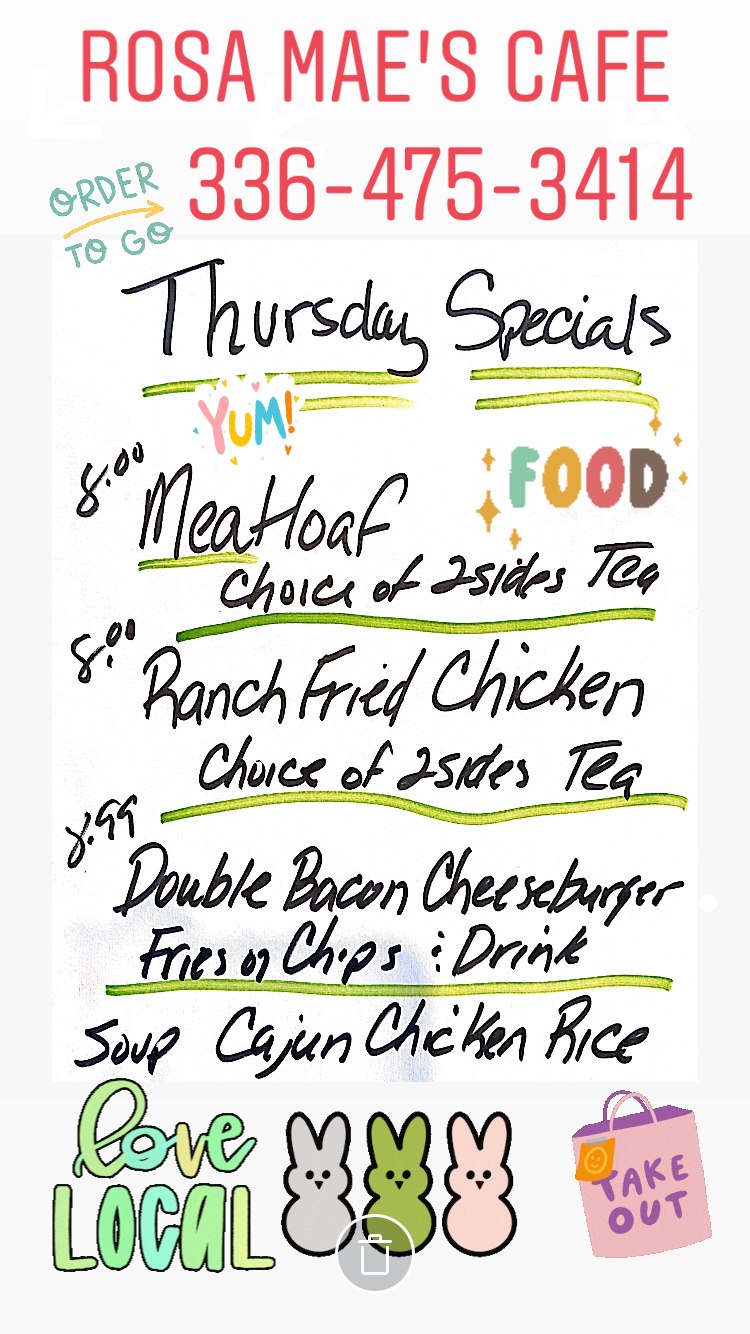 ROSA MAE'S CAFE
336-475-3414
ORDER
TO GO
Thursday Specials
YUM!
FOOD
8.00
Meatloaf
Choice of 2 sides Tea
8.00
Ranch Fried Chicken
Choice of 2 sides Tea
8.99
Double Bacon Cheeseburger
Fries or Chips & Drink
Soup Cajun Chicken Rice
love
LOCAL
TAKE
OUT